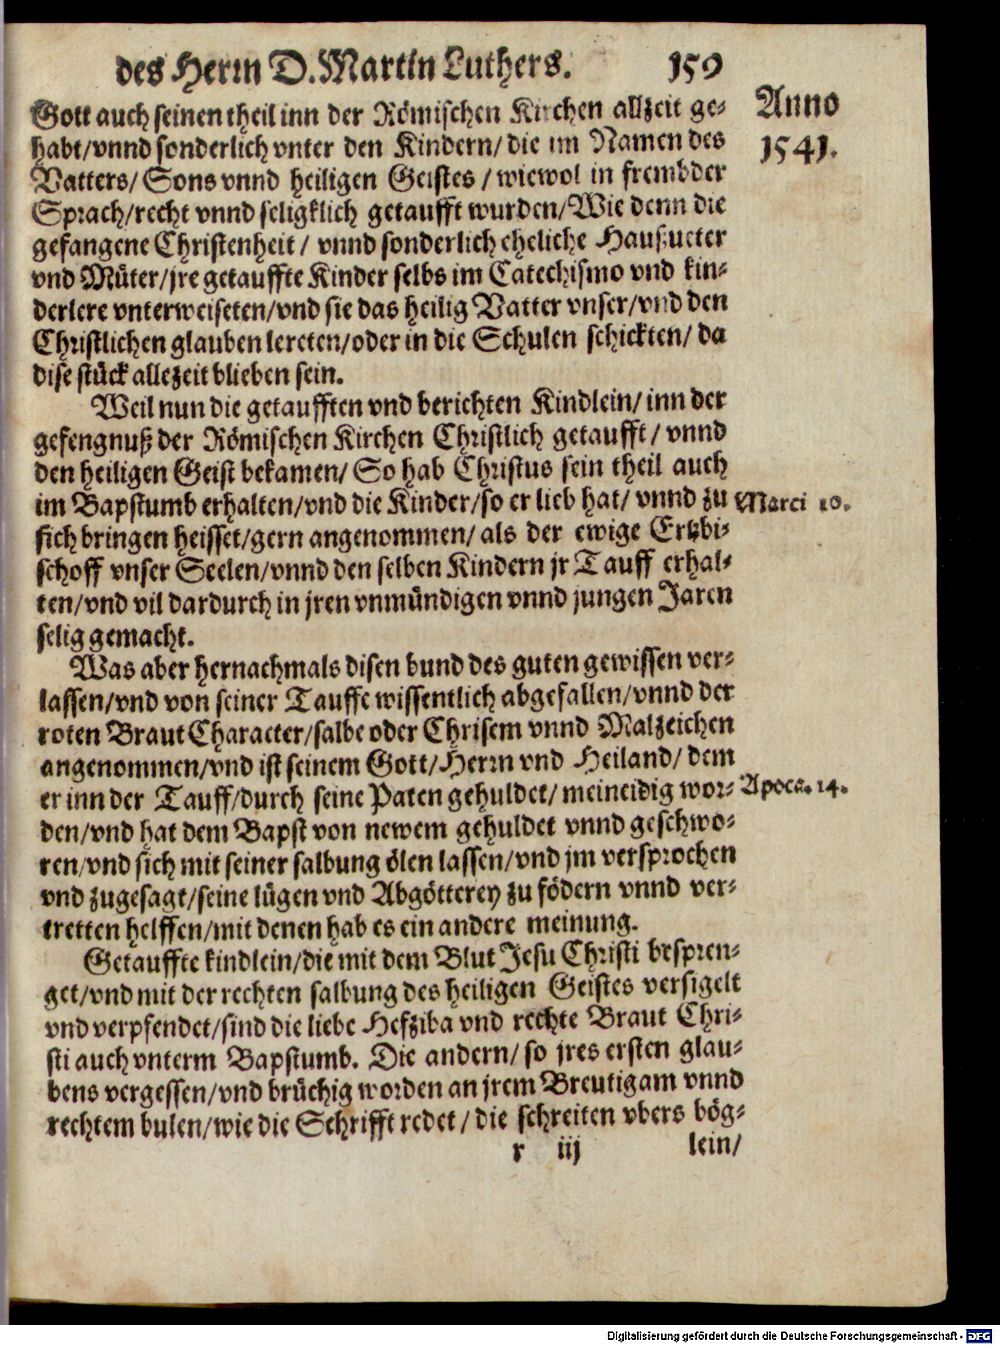 des Herrn D. Martin Luthers. 159
Anno
1541.
Gott auch seinen theil inn der Römischen Kirchen allzeit ge-
habt/vnnd sonderlich vnter den Kindern/die im Namen des
Vatters/Sons vnnd heiligen Geistes/wiewol in frembder
Sprach/recht vnnd seligklich getaufft wurden/Wie denn die
gefangene Christenheit/vnnd sonderlich eheliche Haußueter
vnd Müter/jre getauffte Kinder selbs im Catechismo vnd kin-
derlere vnterweiseten/vnd sie das heilig Vatter vnser/vnd den
Christlichen glauben lereten/oder in die Schulen schickten/da
dise stück allezeit blieben sein.
Weil nun die getaufften vnd berichten Kindlein/inn der
gefengnuß der Römischen Kirchen Christlich getaufft/vnnd
den heiligen Geist bekamen/So hab Christus sein theil auch
im Bapstumb erhalten/vnd die Kinder/so er lieb hat/vnnd zu
Marci 10.
sich bringen heisset/gern angenommen/als der ewige Ertzbi-
schoff vnser Seelen/vnnd den selben Kindern jr Tauff erhal-
ten/vnd vil dardurch in jren vnmündigen vnnd jungen Jaren
selig gemacht.
Was aber hernachmals disen bund des guten gewissen ver-
lassen/vnd von seiner Tauffe wissentlich abgefallen/vnnd der
roten Braut Character/salbe oder Chrisem vnnd Malzeichen
angenommen/vnd ist seinem Gott/Herrn vnd Heiland/dem
er inn der Tauff/durch seine Paten gehuldet/meineidig wor-
Apoca. 14.
den/vnd hat dem Bapst von newem gehuldet vnnd geschwo-
ren/vnd sich mit seiner salbung ölen lassen/vnd jm versprochen
vnd zugesagt/seine lügen vnd Abgötterey zu födern vnnd ver-
tretten helffen/mit denen hab es ein andere meinung.
Getauffte kindlein/die mit dem Blut Jesu Christi bespren-
get/vnd mit der rechten salbung des heiligen Geistes versigelt
vnd verpfendet/sind die liebe Hefziba vnd rechte Braut Chri-
sti auch vnterm Bapstumb. Die andern/so jres ersten glau-
bens vergessen/vnd brüchig worden an jrem Breutigam vnnd
rechtem bulen/wie die Schrifft redet/die schreiten vbers bög-
r iij lein/
Digitalisierung gefördert durch die Deutsche Forschungsgemeinschaft - DFG